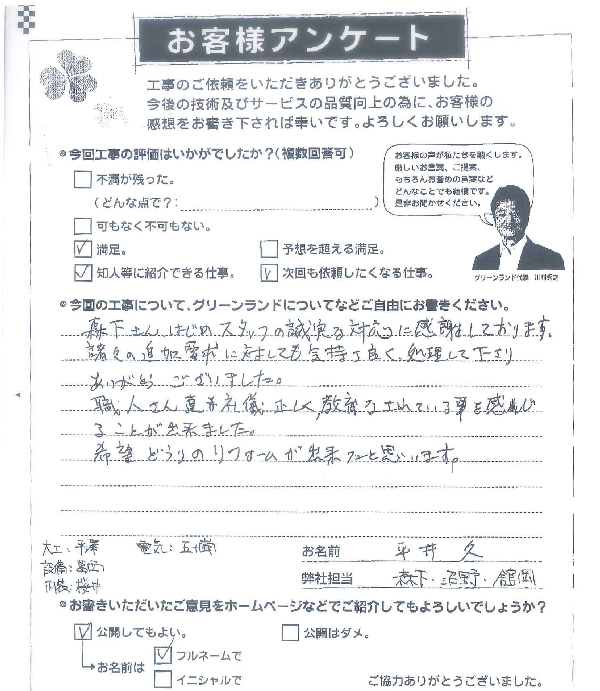 お客様アンケート
工事のご依頼をいただきありがとうございました。
今後の技術及びサービスの品質向上の為に、お客様の
感想をお書き下されば幸いです。よろしくお願いします。
今回工事の評価はいかがでしたか?(複数回答可)
不満が残った。
(どんな点で?: )
可もなく不可もない。
満足。
予想を超える満足。
知人等に紹介できる仕事。
次回も依頼したくなる仕事。
お客様の声が私たちを動くします。
厳しいお言葉、ご提案、
もちろんお褒めの言葉など
どんなことでも結構です。
是非お聞かせください。
グリーンランド代表
今回の工事について、グリーンランドについてなどご自由にお書きください。
森下さんはじめ、スタッフの誠実な対応に感謝しております。
諸々の追加要求に対しても気持ち良く、処理して下さり
ありがとうございました。
職人さん 礼儀正しく、教育されている事を感じ
ることが出来ました。
希望どうりのリフォームが出来たと思います。
大工:平澤
電気:
設備:
内装:桜井
お名前 平井 久
弊社担当 森下・沼野・舘岡
お書きいただいたご意見をホームページなどでご紹介してもよろしいでしょうか?
公開してもよい。
公開はダメ。
お名前は
フルネームで
イニシャルで
ご協力ありがとうございました。